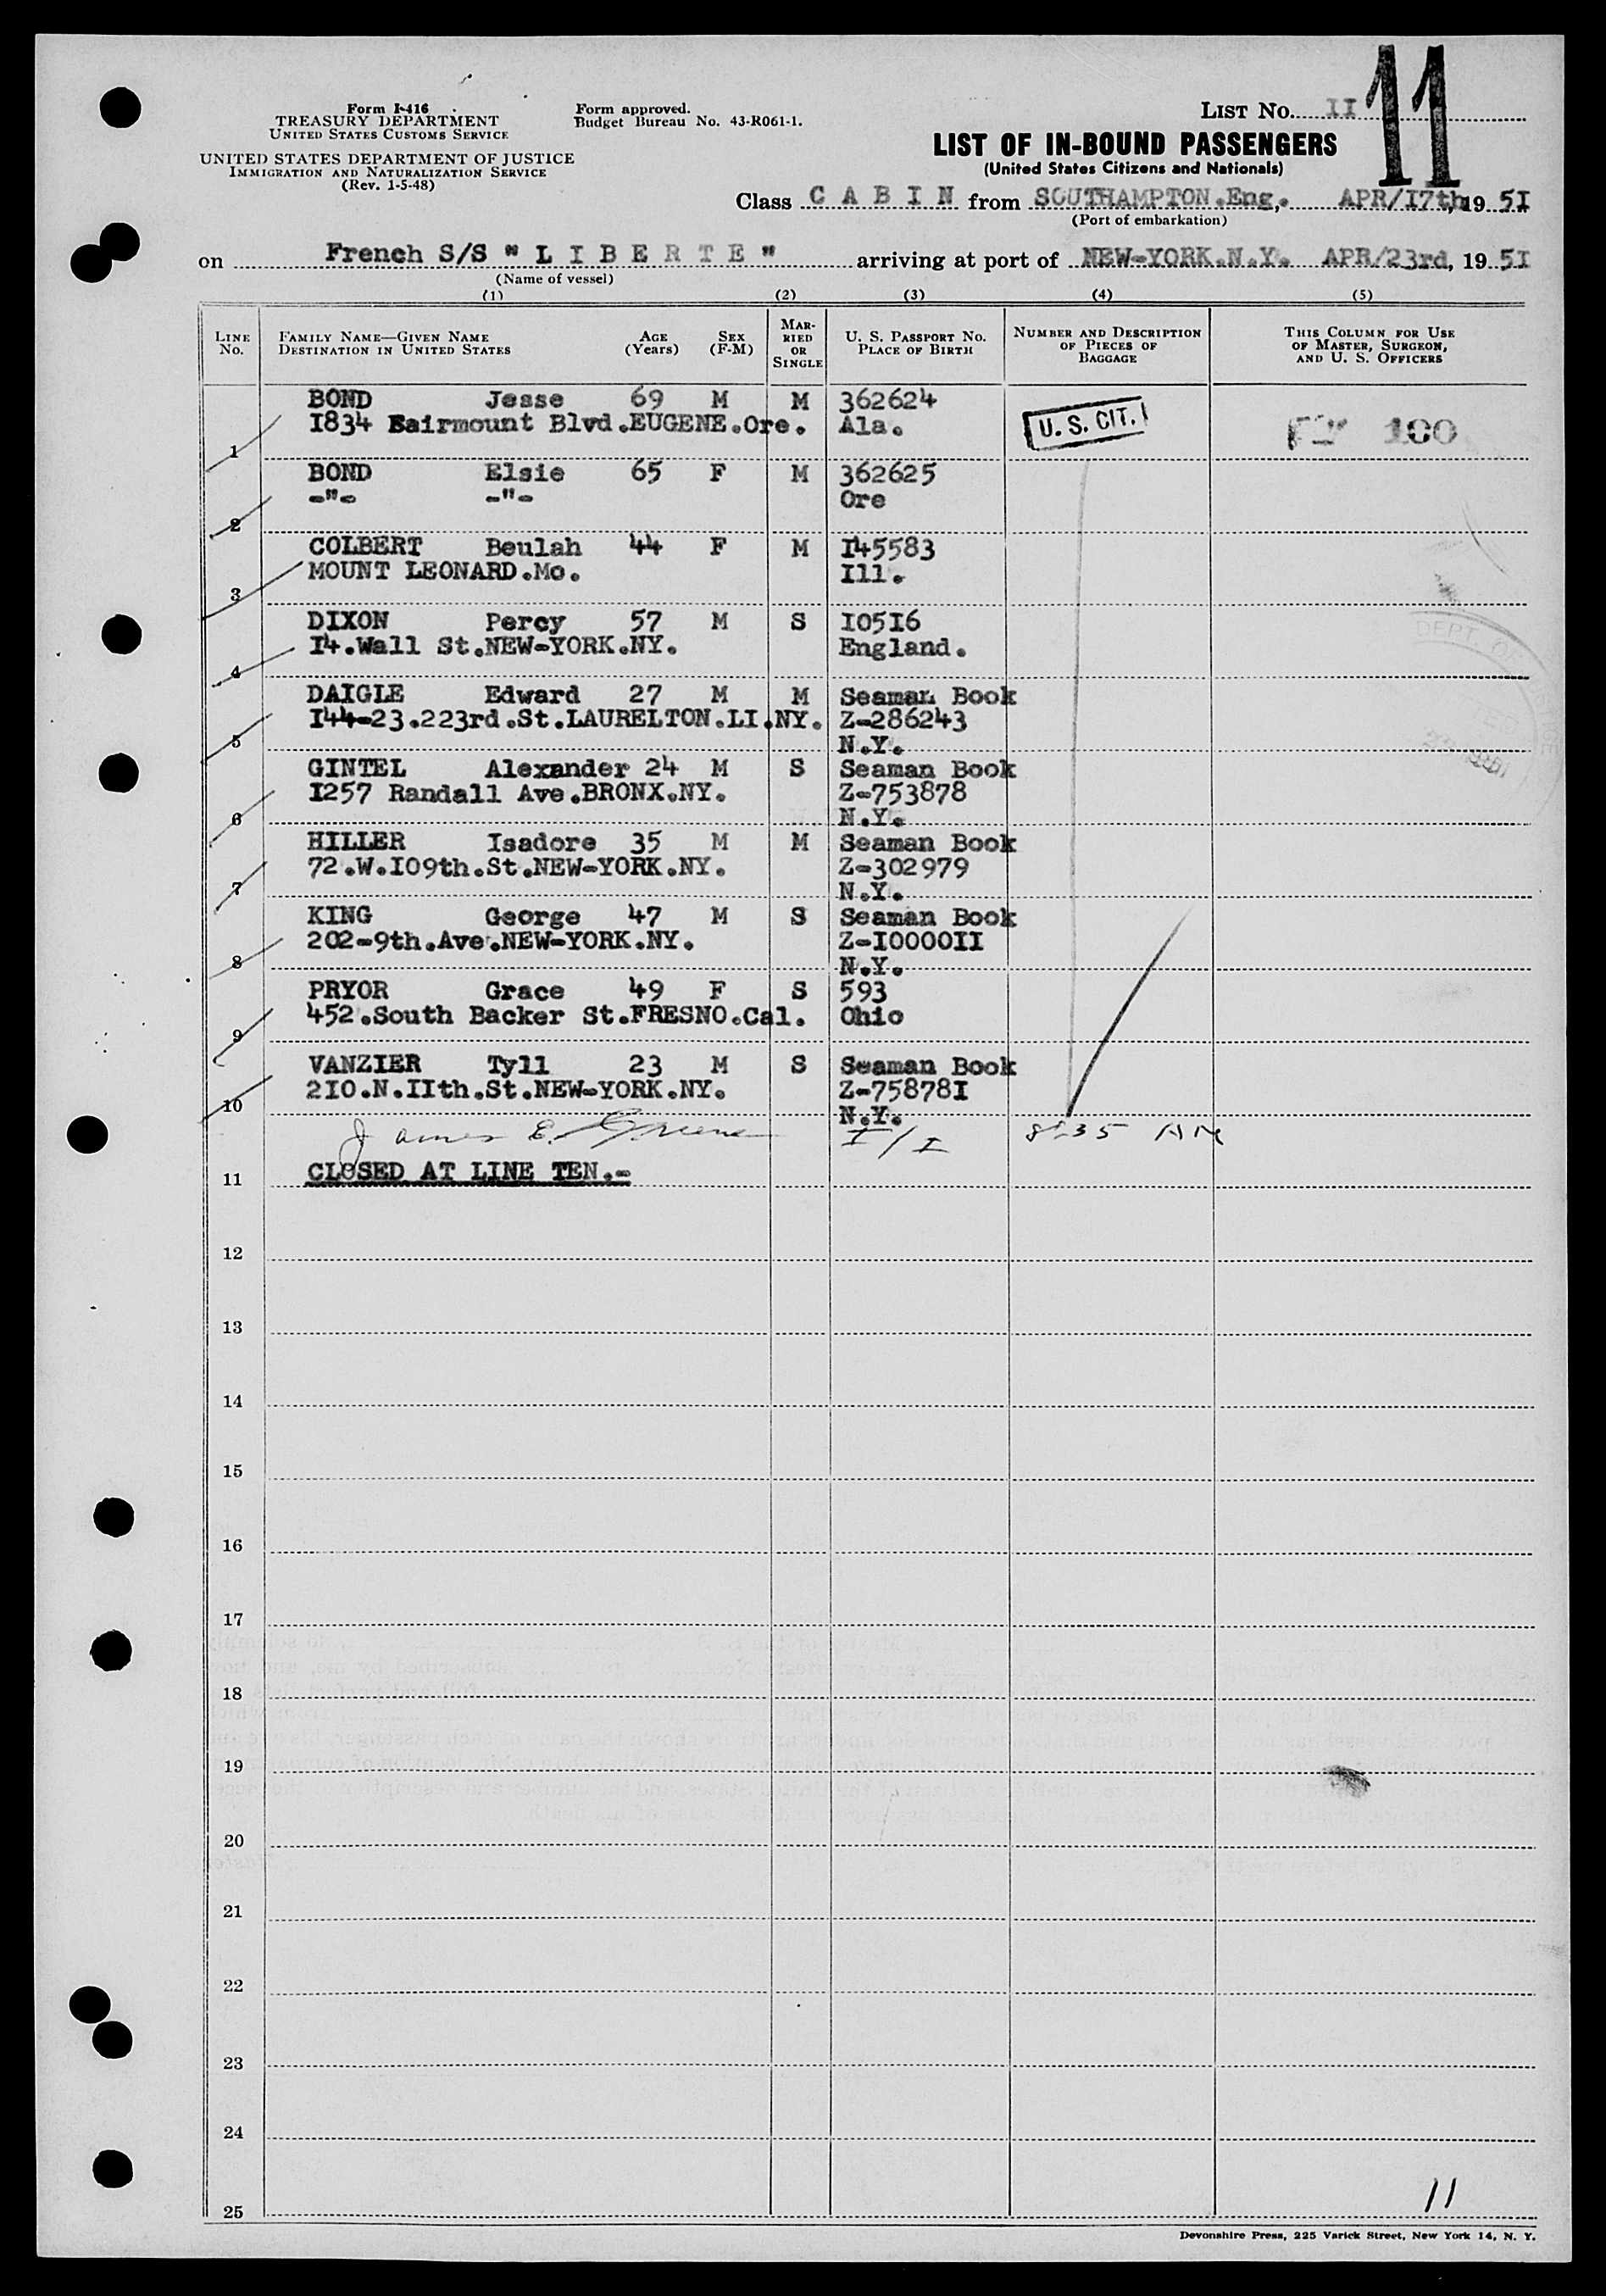 11
Form I-416
TREASURY DEPARTMENT
UNITED STATES CUSTOMS SERVICE
UNITED STATES DEPARTMENT OF JUSTICE
IMMIGRATION AND NATURALIZATION SERVICE
(Rev. 1-5-48)
Form approved.
Budget Bureau No. 43-R061-1.
LIST No. II
LIST OF IN-BOUND PASSENGERS
(United States Citizens and Nationals)
Class C A B I N from SOUTHAMPTON.Eng,. APR/I7th, 19 5I
(Port of embarkation)
on French S/S " L I B E R T E " arriving at port of NEW-YORK.N.Y. APR/23rd, 19 5I
(Name of vessel)
(1) (2) (3) (4) (5)
LINE No. FAMILY NAME—GIVEN NAME DESTINATION IN UNITED STATES AGE (Years) SEX (F-M) MARRIED OR SINGLE U. S. PASSPORT No. PLACE OF BIRTH NUMBER AND DESCRIPTION OF PIECES OF BAGGAGE THIS COLUMN FOR USE OF MASTER, SURGEON, AND U. S. OFFICERS
BOND Jesse 69 M M 362624
I834 Fairmount Blvd.EUGENE.Ore. Ala. U. S. CIT. 100
1
BOND Elsie 65 F M 362625
-"- -"- Ore
2
COLBERT Beulah 44 F M I45583
MOUNT LEONARD.Mo. Ill.
3
DIXON Percy 57 M S I05I6
I4.Wall St.NEW-YORK.NY. England.
4
DAIGLE Edward 27 M M Seaman Book
I44-23.223rd.St.LAURELTON.LI.NY. Z-286243
5 N.Y.
GINTEL Alexander 24 M S Seaman Book
I257 Randall Ave.BRONX.NY. Z-753878
6 N.Y.
HILLER Isadore 35 M M Seaman Book
72.W.I09th.St.NEW-YORK.NY. Z-302979
7 N.Y.
KING George 47 M S Seaman Book
202-9th.Ave.NEW-YORK.NY. Z-I0000II
8 N.Y.
PRYOR Grace 49 F S 593
452.South Backer St.FRESNO.Cal. Ohio
9
VANZIER Tyll 23 M S Seaman Book
2I0.N.IIth.St.NEW-YORK.NY. Z-75878I
10 N.Y.
James E. Greene I/I 8:35 AM
11 CLOSED AT LINE TEN.-
12
13
14
15
16
17
18
19
20
21
22
23
24
25
11
Devonshire Press, 225 Varick Street, New York 14, N. Y.